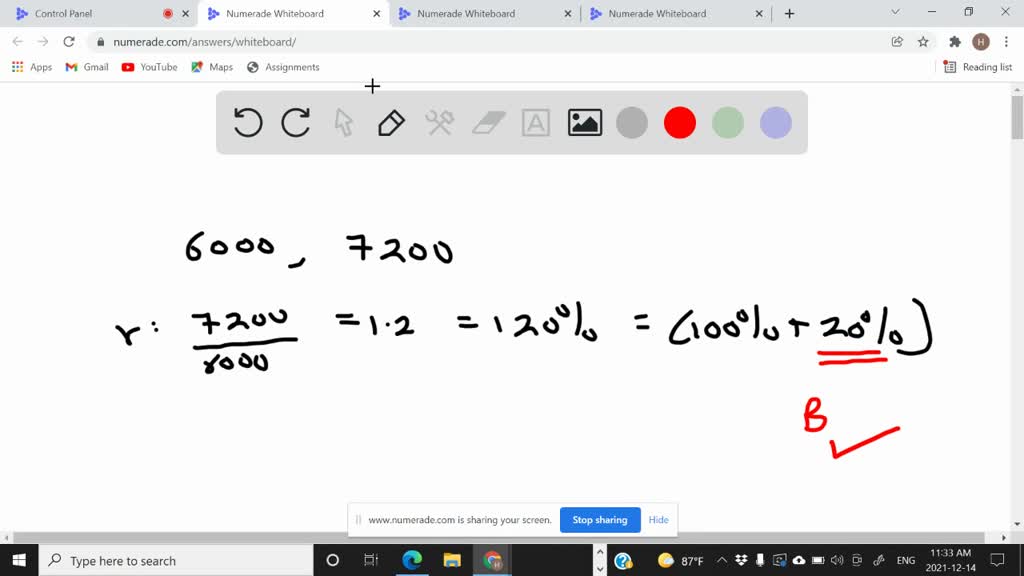 Control Panel
Numerade Whiteboard
Numerade Whiteboard
Numerade Whiteboard
numerade.com/answers/whiteboard/
H
Apps Gmail YouTube Maps Assignments Reading list
A
6000, 7200
r: 7200/6000 = 1.2 = 120% = (100% + 20%)
B
www.numerade.com is sharing your screen. Stop sharing Hide
Type here to search
87°F ENG 11:33 AM
2021-12-14